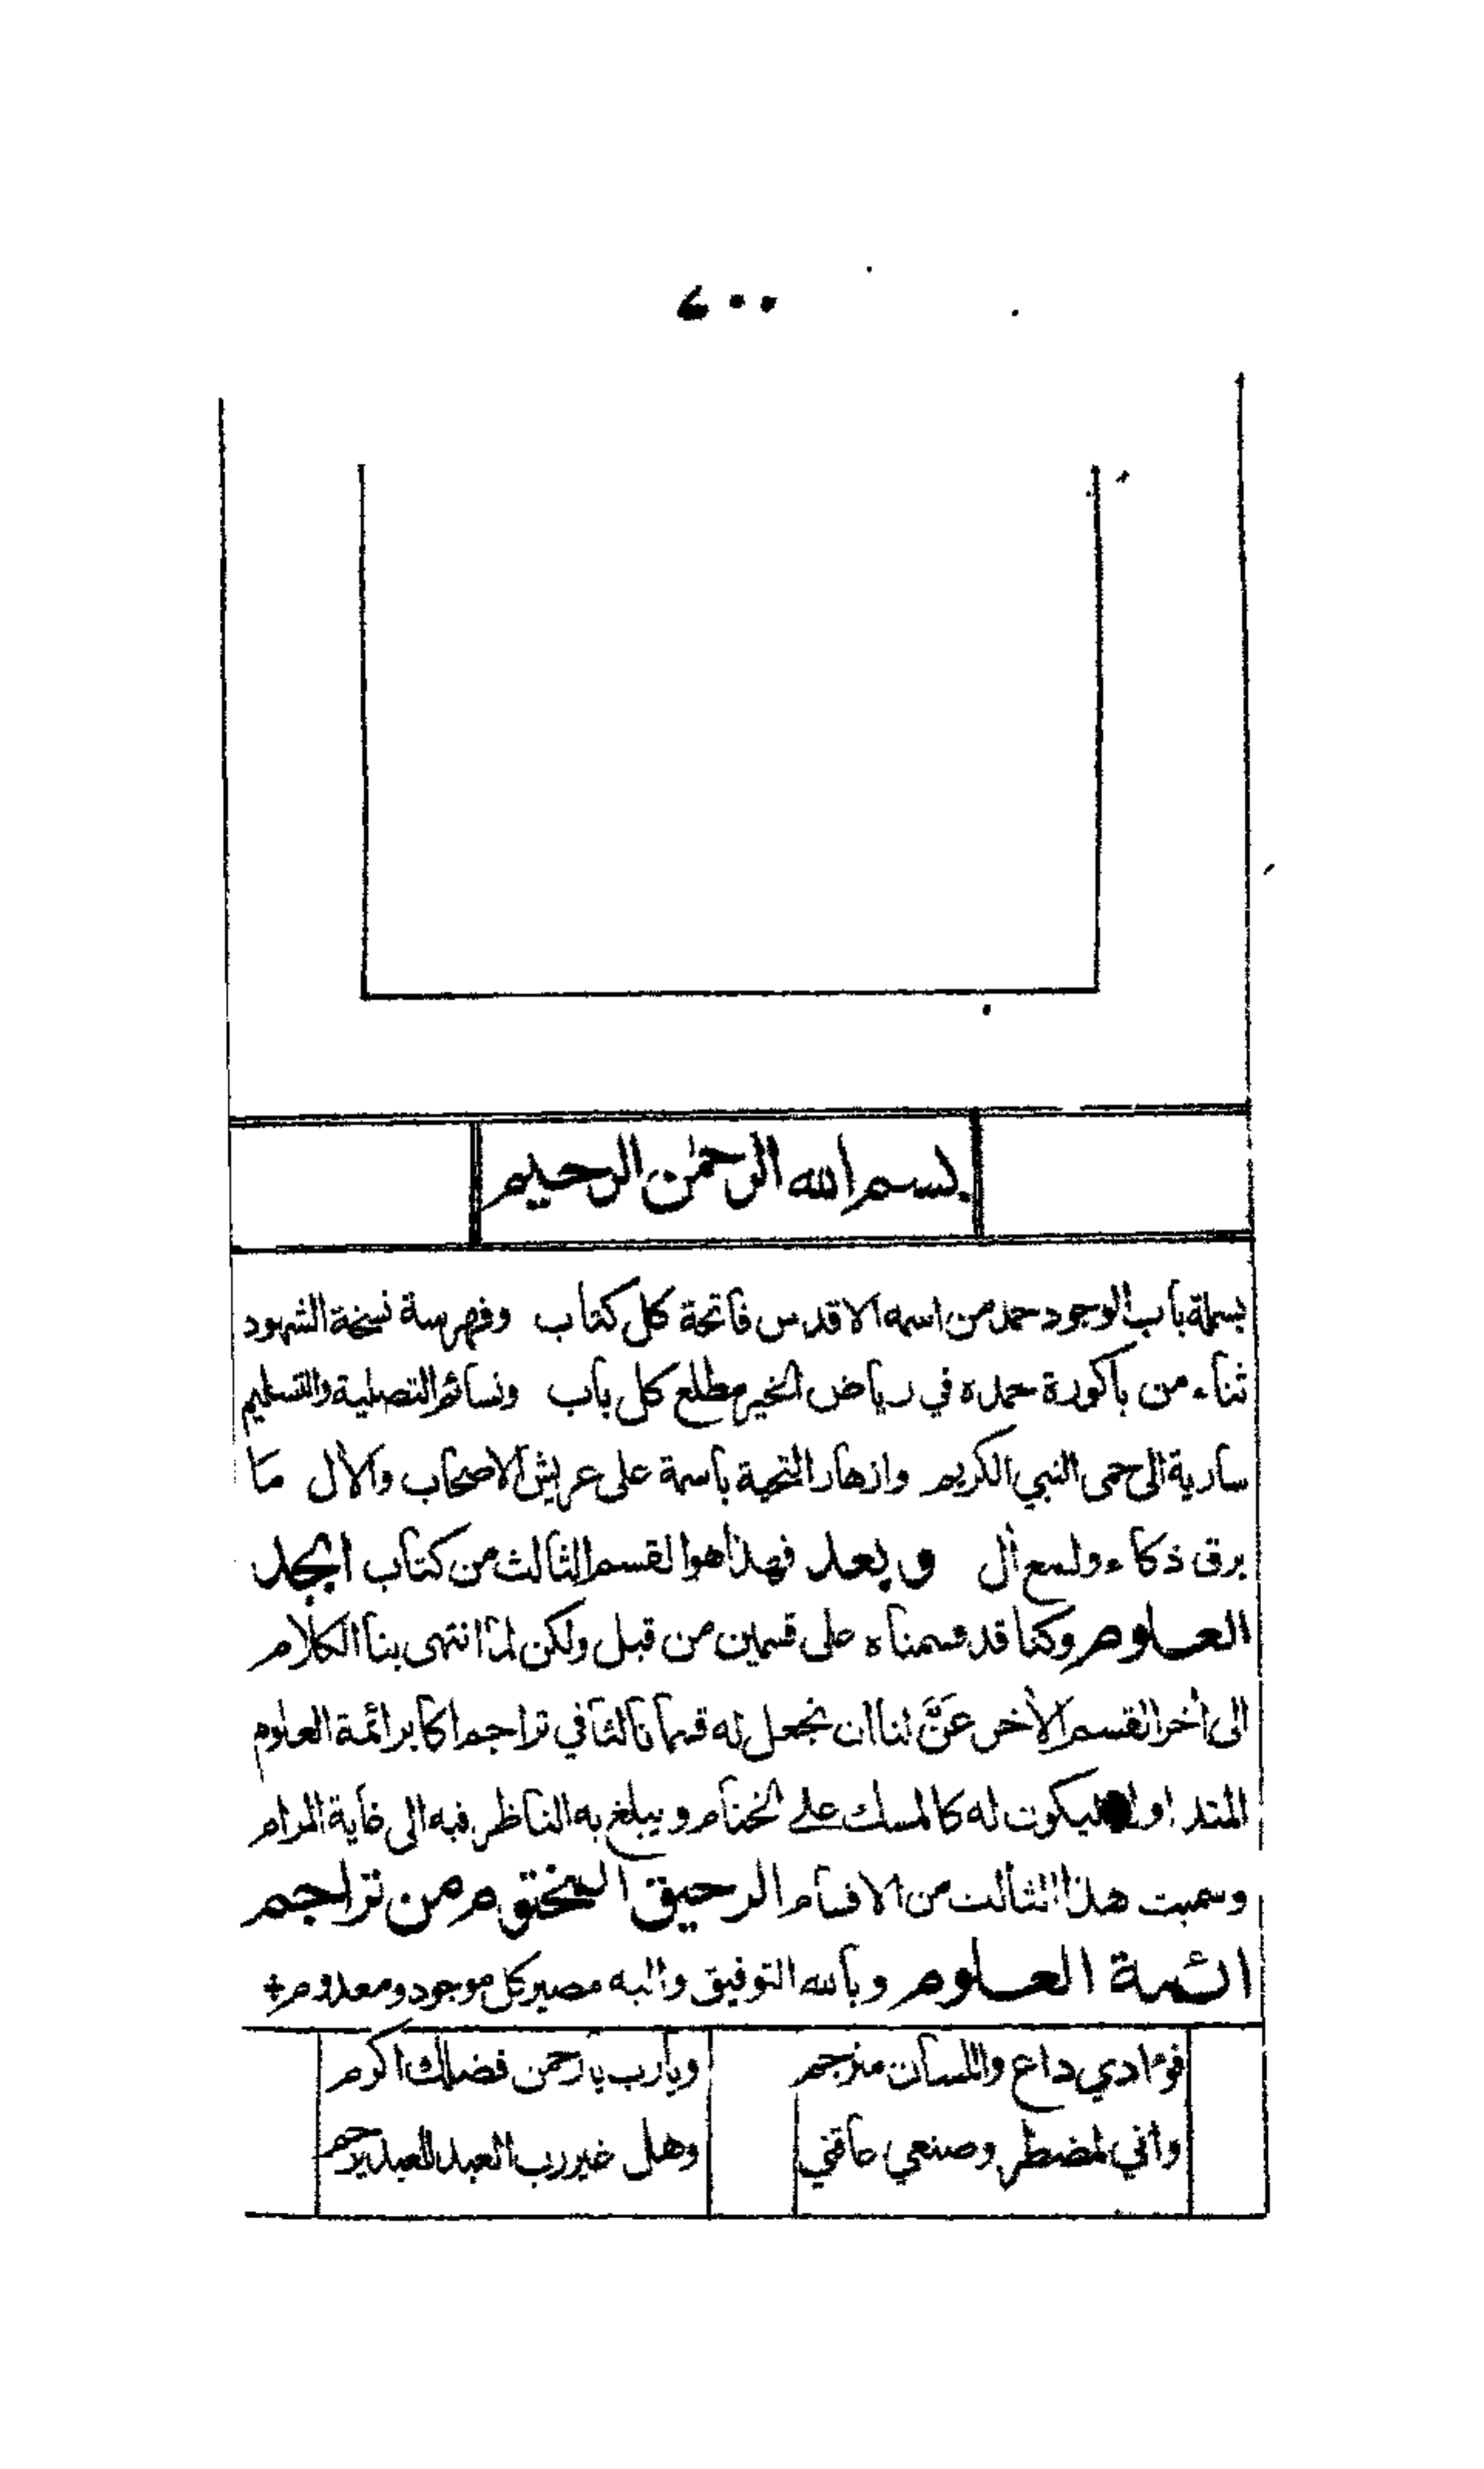 ٧٠٠
بسم الله الرحمٰن الرحيم
بسملة باب الوجود حمد من اسمه الاقدس فاتحة كل كتاب وفهرسة نسخة الشهود
ثناء من باكورة حمده في رياض الخير مطلع كل باب ونسائم التصلية والتسليم
سارية الى حمى النبي الكريم وازهار التحية باسمة على عريش الاصحاب والآل ما
برق ذكاء ولمع آل وبعد فهذا هو القسم الثالث من كتاب ابجد
العلوم وكنا قد قسمناه على قسمين من قبل ولكن لما انتهى بنا الكلام
الى آخر القسم الآخر عَنَّ لنا ان نجعل له قسما ثالثا في تراجم اكابر ائمة العلوم
المتداولة ليكون له كالمسك على الختام ويبلغ به الناظر فيه الى غاية المرام
وسميت هذا الثالث من الاقسام الرحيق المختوم من تراجم
ائمة العلوم وبالله التوفيق واليه مصير كل موجود ومعدوم+
فؤادي داع واللسان مترجم ويا رب يا رحمن فضلك اكرم
واني لمضطر وصنعي عاقني وهل غير رب العبد للعبد يرحم